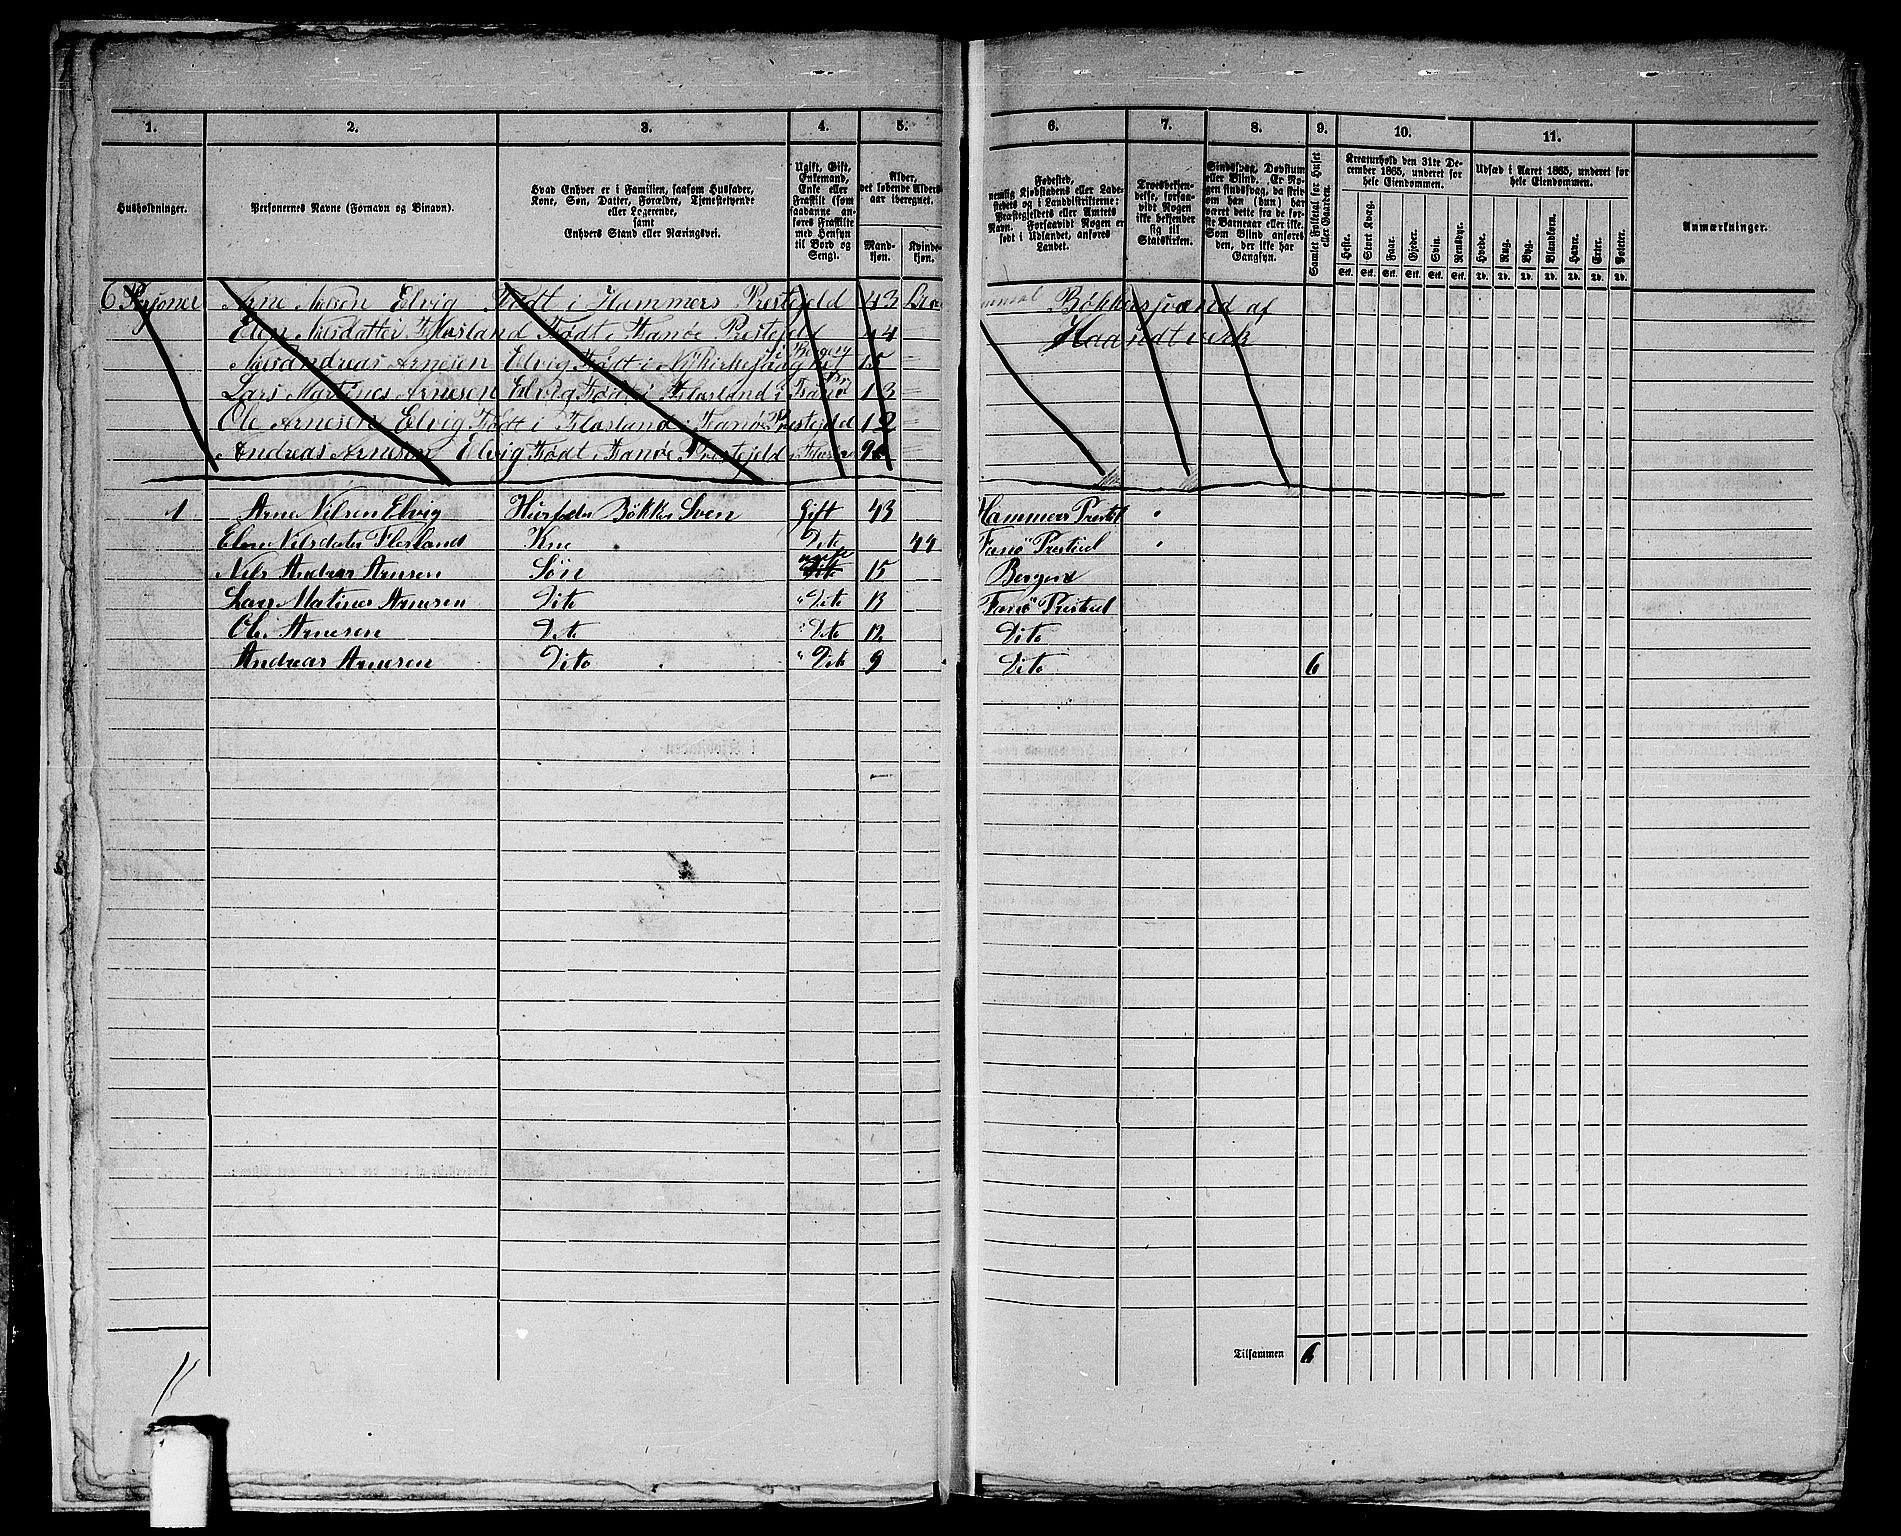 1. 2. 3. 4. 5. 6. 7. 8. 9. 10. 11.
Husholdninger.
Personernes Navne (Fornavn og Binavn).
Hvad Enhver er i Familien, saasom Husfader,
Kone, Søn, Datter, Forældre, Tjenestetyende
eller Logerende,
samt
Enhvers Stand eller Næringsvei.
Ugift, Gift,
Enkemand,
Enke eller
Fraskilt (som
saadanne an-
føres Fraskilte
med Hensyn
til Bord og
Seng).
Alder,
det løbende Alders-
aar iberegnet.
Mand-
kjøn.
Kvinde-
kjøn.
Fødested,
nemlig Kjøbstadens eller Lade-
stedets og i Landdistrikterne:
Præstegjeldets eller Amtets
Navn. Forsaavidt Nogen er
født i Udlandet, anføres
Landet.
Troesbekjen-
delse, forsaa-
vidt Nogen
ikke bekjender
sig til
Statskirken.
Sindssvag, Døvstum
eller Blind. Er No-
gen sindssvag, da skriv
om han (hun) har
været dette fra de før-
ste Barneaar eller ikke.
Som Blind anføres
den, der ikke har
Gangsyn.
Samlet Folketal for Huset
eller Gaarden.
Kreaturhold den 31te De-
cember 1865, underet for
hele Eiendommen.
Heste. Stort Kvæg. Faar. Gjeder. Svin. Rensdyr.
Stk. Stk. Stk. Stk. Stk. Stk.
Udsæd i Aaret 1865, underet for
hele Eiendommen.
Hvede. Rug. Byg. Blandkorn. Havre. Erter. Poteter.
Td. Td. Td. Td. Td. Td. Td.
Anmærkninger.
6 Personer Arne Nielsen Elvig Født i Hammers Prestejeld 43 Bökkersvænd af
Elen Nilsdatter Flæsland Født i Fanöe Prestejeld 44 Haandtverk
Nilsandreas Arnesen Elvig Født i Nykirkesogn Bergen 15
Lars Martines Arnesen Elvig Født i Flæsland i Fanöe 13
Ole Arnesen Elvig Født i Flæsland i Fanöe Prestejeld 12
Andreas Arnesen Elvig Født i Fanöe Prestejeld 9
1 Arne Nilsen Elvig Husfader Bøkker Sven Gift 43 Hammers Prestjel "
Elen Nilsdater Flesland Kne Dito 44 Fanö Prestjel "
Nils Andreas Arnesen Søn ugift 15 Bergen
Lars Matines Arnesen Dito " Dito 13 Fanö Prestjel
Ole Arnesen Dito " Dito 12 Dito
Andreas Arnesen Dito " Dito 9 Dito 6
Tilsammen 6